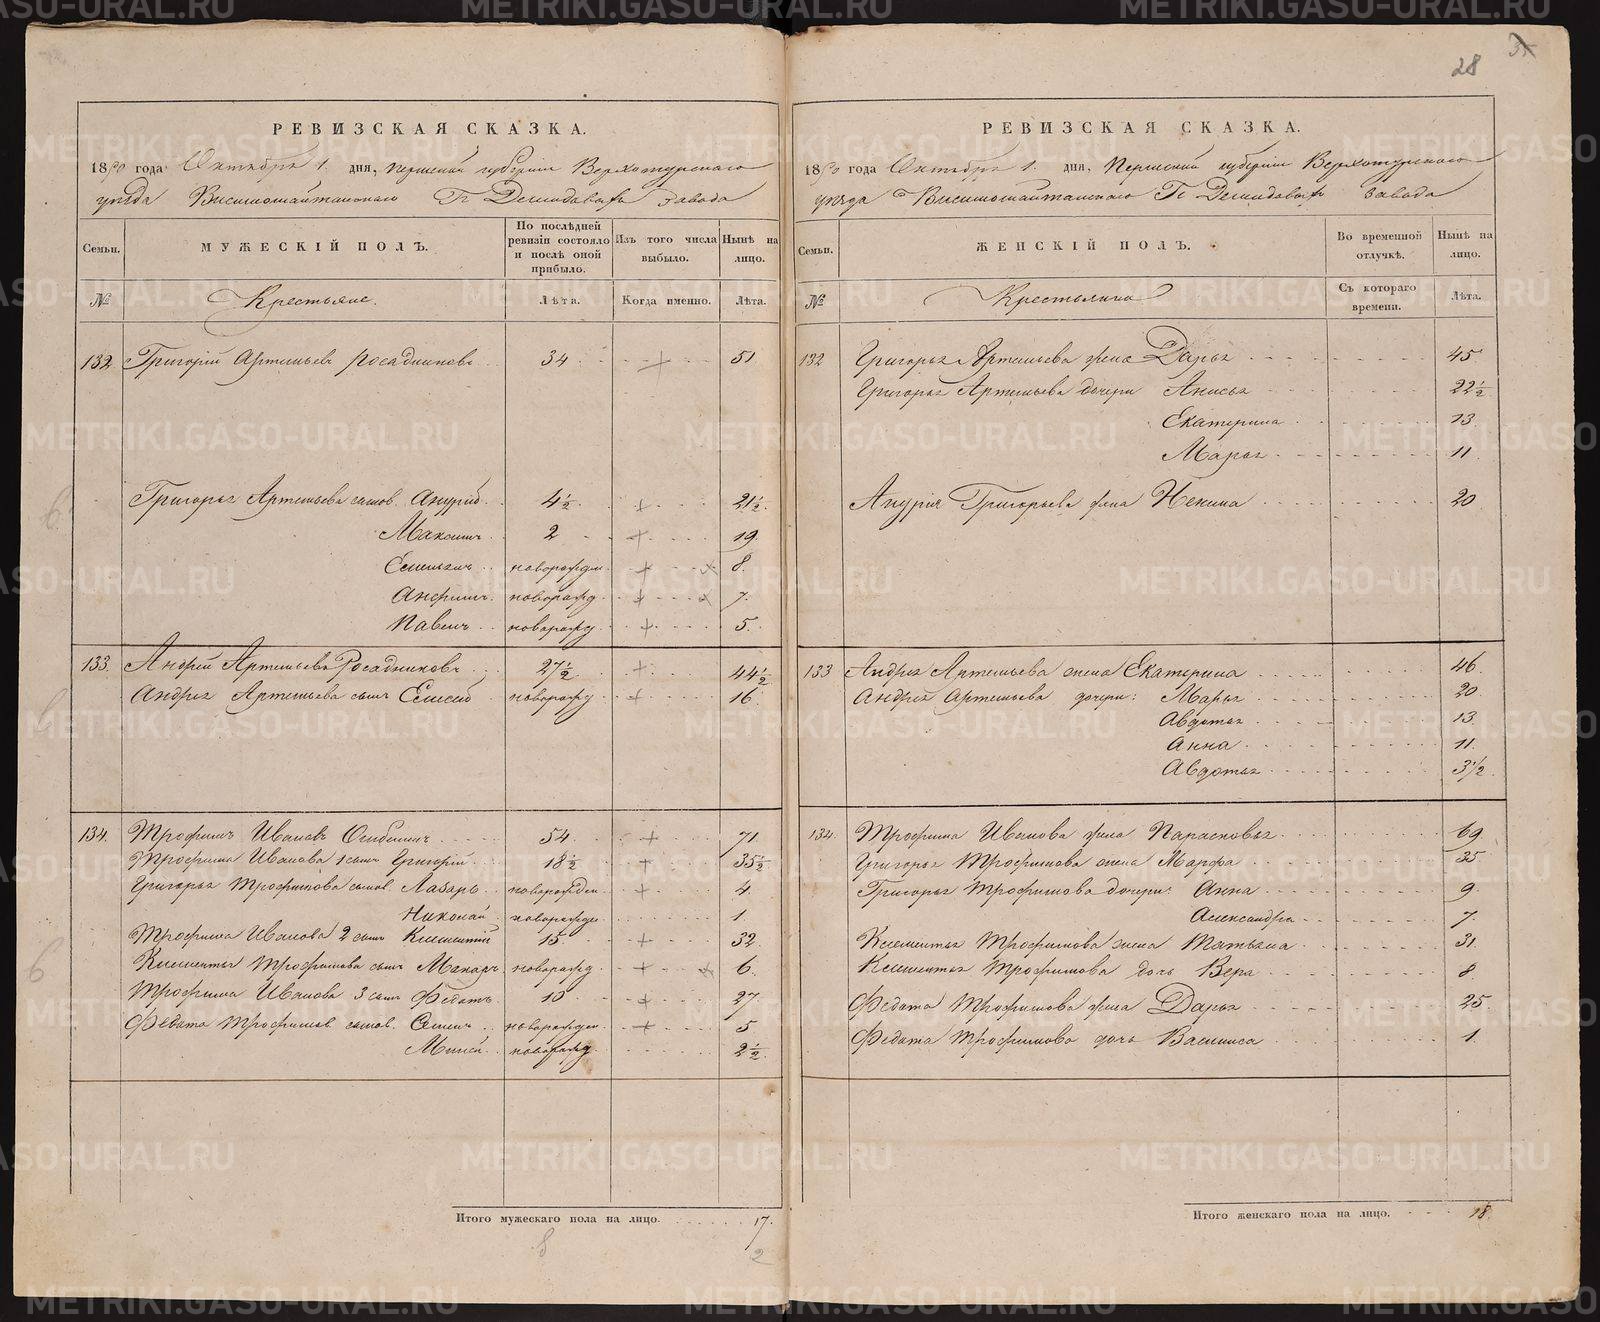 28
РЕВИЗСКАЯ СКАЗКА.
1850 года Октября 1. дня, Пермской губернiи Верхотурскаго
уѣзда Висимошайтанскаго Гг Демидовыхъ завода
Семьи.
МУЖЕСКІЙ ПОЛЪ.
По послѣдней ревизіи состояло и послѣ оной прибыло.
Изъ того числа выбыло.
Нынѣ на лицо.
№
Крестьяне.
Лѣта.
Когда именно.
Лѣта.
132 Григорій Артемьевъ Росадниковъ 34 51
Григорья Артемьева сынов. Андрей 4½ 21½
Максимъ 2 19
новорожден 8.
новорожд 7.
новорожд 5.
133. Андрей Артемьевъ Росадниковъ 27½ 44½
Андрея Артемьева сынъ Елисей новорожд 16
134. Трофимъ Ивановъ 54 71.
Трофима Иванова 1 сынъ Григорій 18½ 35½
Григорья Трофимова сынов. Лазарь новорожден 4.
Николай новорожден 1
Трофима Иванова 2 сынъ Климентій 15 32.
Климентья Трофимова сынъ Макаръ новорожд 6.
Трофима Иванова 3 сынъ Федатъ 10 27
Федата Трофимов. сынов. новорожден 5
Миней новорожд. 2½
Итого мужескаго пола на лицо. 17.
2
РЕВИЗСКАЯ СКАЗКА.
1850 года Октября 1. дня, Пермской губернiи Верхотурскаго
уѣзда Висимошайтанскаго Гг Демидовыхъ завода
Семьи.
ЖЕНСКІЙ ПОЛЪ.
Во временной отлучкѣ.
Нынѣ на лицо.
№
Съ котораго времени.
Лѣта.
132 Григорья Артемьева жена Дарья 45
Григорья Артемьева дочери Анисья 22½
Екатерина 13
Марья 11
Андрея Григорьева жена 20
133 Андрея Артемьева жена Екатерина 46
Андрея Артемьева дочери: Марья 20
Авдотья 13
Анна 11.
Авдотья 3½
134. Трофима Иванова жена Парасковья 69
Григорья Трофимова жена Марфа 35
Григорья Трофимова дочери: Анна 9
Александра 7.
Климентья Трофимова жена Татьяна 31.
Климентья Трофимова дочь Вера 8
Федата Трофимова жена Дарья 25
Федата Трофимова дочь Василиса 1.
Итого женскаго пола на лицо. 18.
METRIKI.GASO-URAL.RU